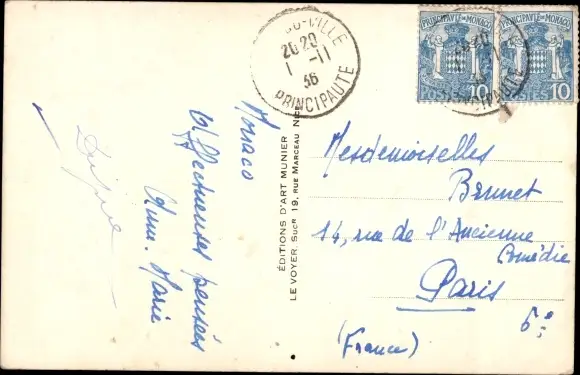 Monaco
Affectueuses pensées
Anne. Marie
ÉDITIONS D'ART MUNIER
LE VOYER, SUCR 19, RUE MARCEAU NICE
CO-VILLE
20 20
1 -11
36
PRINCIPAUTE
PRINCIPAUTE DE MONACO
POSTES 10
PRINCIPAUTE DE MONACO
POSTES 10
Mesdemoiselles
Brunet
14, rue de l'Ancienne
Comédie
Paris
6e
(France)